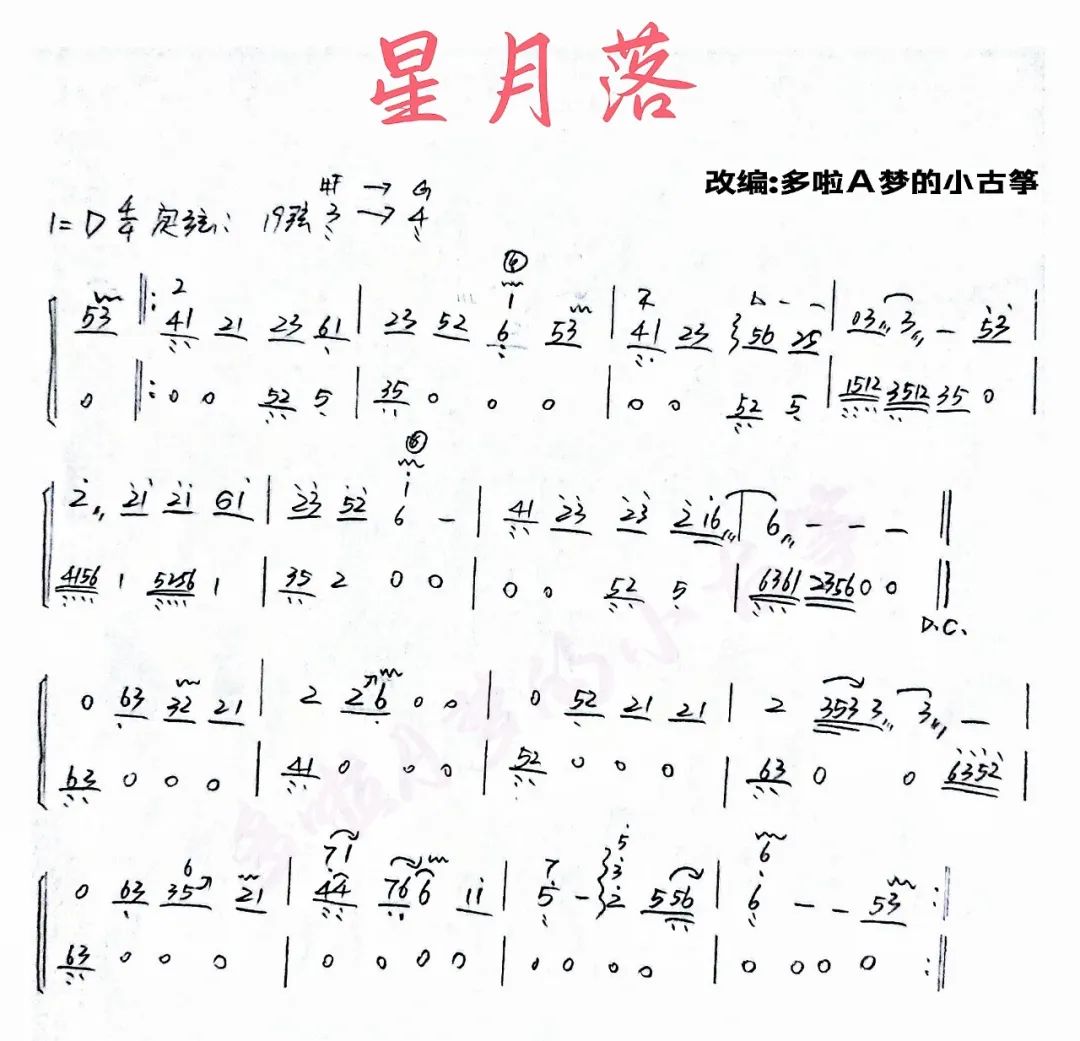 星月落
改编:多啦A梦的小古筝
#F → G
1=D 4/4 定弦: 19弦 3 → 4
53 ‖: 2 41 21 23 61 | 23 52 ⑥ 1 6 53 | 7 41 23 56 25 | 03 3 - 53 |
0 ‖: 0 0 52 5 | 35 0 0 0 | 0 0 52 5 | 1512 3512 35 0 |
2 21 21 61 | 23 52 ⑥ 1 6 - | 41 23 23 216 | 6 - - - ‖
4156 1 5256 1 | 35 2 0 0 | 0 0 52 5 | 6361 2356 0 0 ‖
D.C.
0 63 32 21 | 2 26 0 0 | 0 52 21 21 | 2 353 3 3 - |
63 0 0 0 | 41 0 0 0 | 52 0 0 0 | 63 0 0 6352 |
0 63 35 6 21 | 71 44 76 6 11 | 7 5 - 5 3 2 556 | 6 6 - - 53 :‖
63 0 0 0 | 0 0 0 0 | 0 0 0 0 | 0 0 0 0 :‖
多啦A梦的小古筝